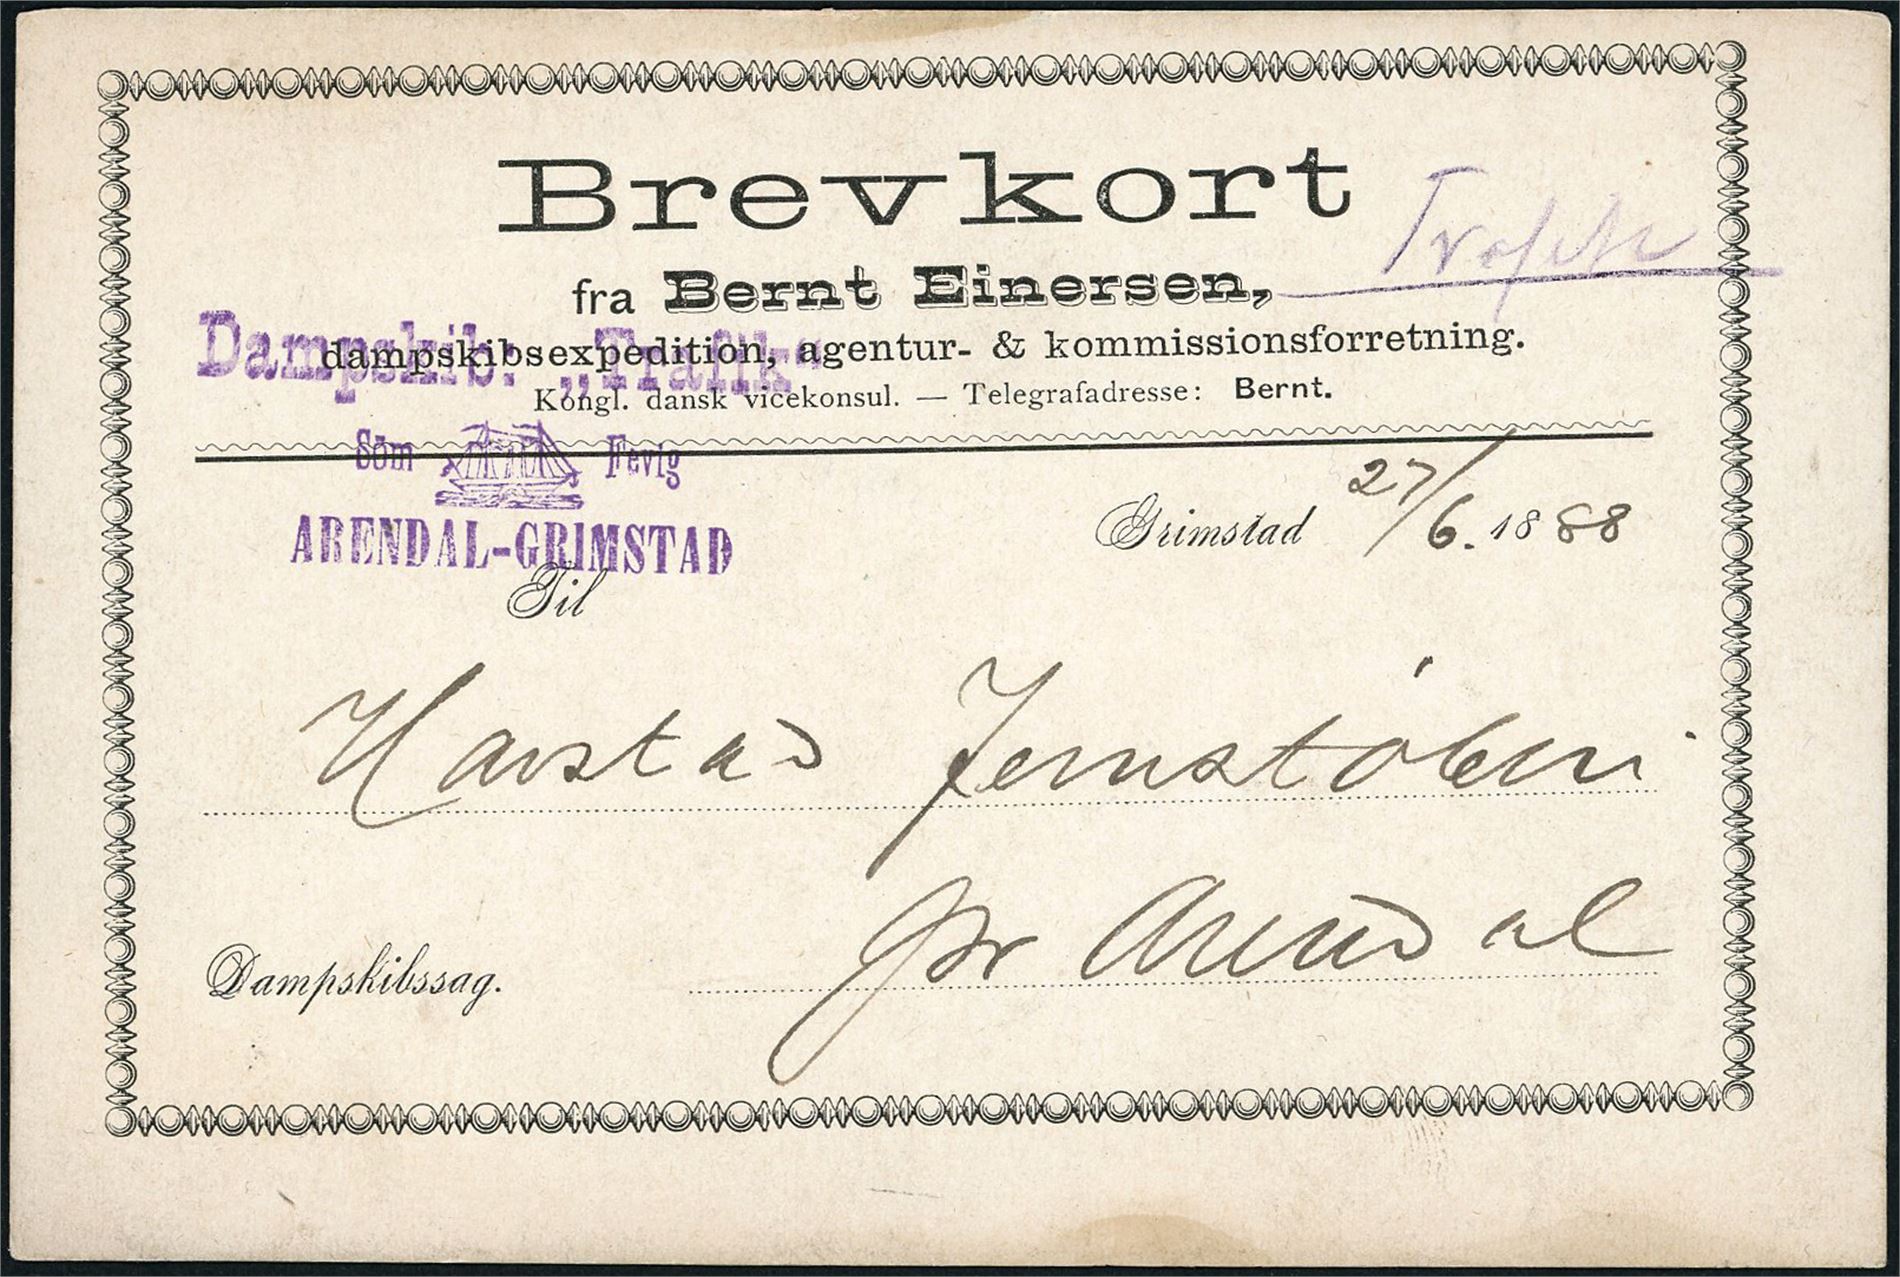 Brevkort
fra Bernt Einersen,
dampskibsexpedition, agentur- & kommissionsforretning.
Kongl. dansk vicekonsul. — Telegrafadresse: Bernt.
Dampskib: „Trafik“
Söm Fevig
ARENDAL-GRIMSTAD
Grimstad 27/6. 1888
Til
Harstad Jernstöberi
pr Arendal
Dampskibssag.